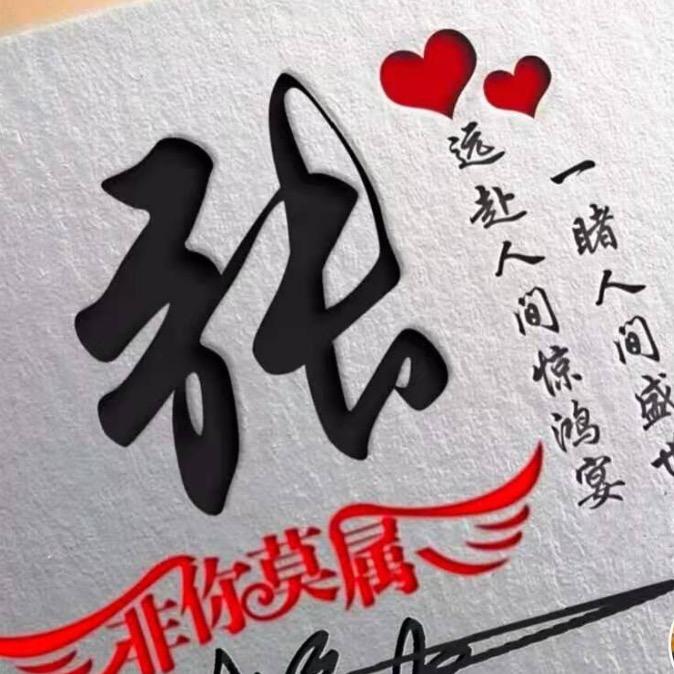 张
远赴人间惊鸿宴
一睹人间盛世
非你莫属